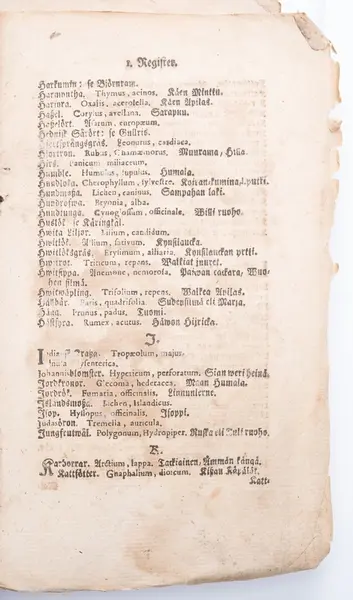 1. Register.
Harkumin: se Björnram.
Harmyntha, Thymus, acinos. Käen Minttu.
Harwäpla, Oxalis, acetosella, Käen Apilas.
Haßel, Corylus, avellana. Sarapuu.
Haßelört, Asarum, europæum.
Hednisk Särört: se Gullris.
Leonurus, cardiaca.
Hjortron, Rubus, Chamæmorus. Muurama, Hilla.
Hirs, Panicum, miliaceum.
Humble, Humulus, lupulus. Humala.
Hundloka, Chærophyllum, sylvestre. Koiran kumina, l. putki.
Hundmoßa, Lichen, caninus, Sampahan laki.
Hundrofwa, Bryonia, alba.
Hundtunga, Cynoglossum, officinale. Willi ruoho.
Huslök, se Käringkål.
Hwita Liljor, Lilium, candidum.
Hwitlök, Allium, sativum. Kynsilaucka.
Hwitlöksgräs, Erysimum, alliaria. Kynsilaucan
Hwitrot, Triticum, repens. Walkiat juuret.
Hwitsippa, Anemone, nemorosa,
hen silmä.
Hwitwäpling, Trifolium, repens, Walkea Apilas.
Paris, quadrifolia. Sudensilmä eli Marja.
Hägg, Prunus, padus, Tuomi.
Hästsyra, Rumex, acutus. Häwon Hijricka.
J.
Tropæolum, majus.
Johannisblomster, Hypericum, perforatum. Sian weri heinä.
Jordrefwor, Glecoma, hederacea. Maan Humala.
Jordrök, Fumaria, officinalis. Linnunlerne.
Islandsmoßa, Lichen, Islandicus.
Isop, Hyssopus, officinalis. Isoppi.
Judasöron, Tremella, auricula.
Jungfrutwål, Polygonum, Hydropiper.
K.
Kardborrar, Arctium, lappa. Tackiainen, Ämmän
Kattfötter, Gnaphalium, dioicum. Kißan Käpälät.
Katt-